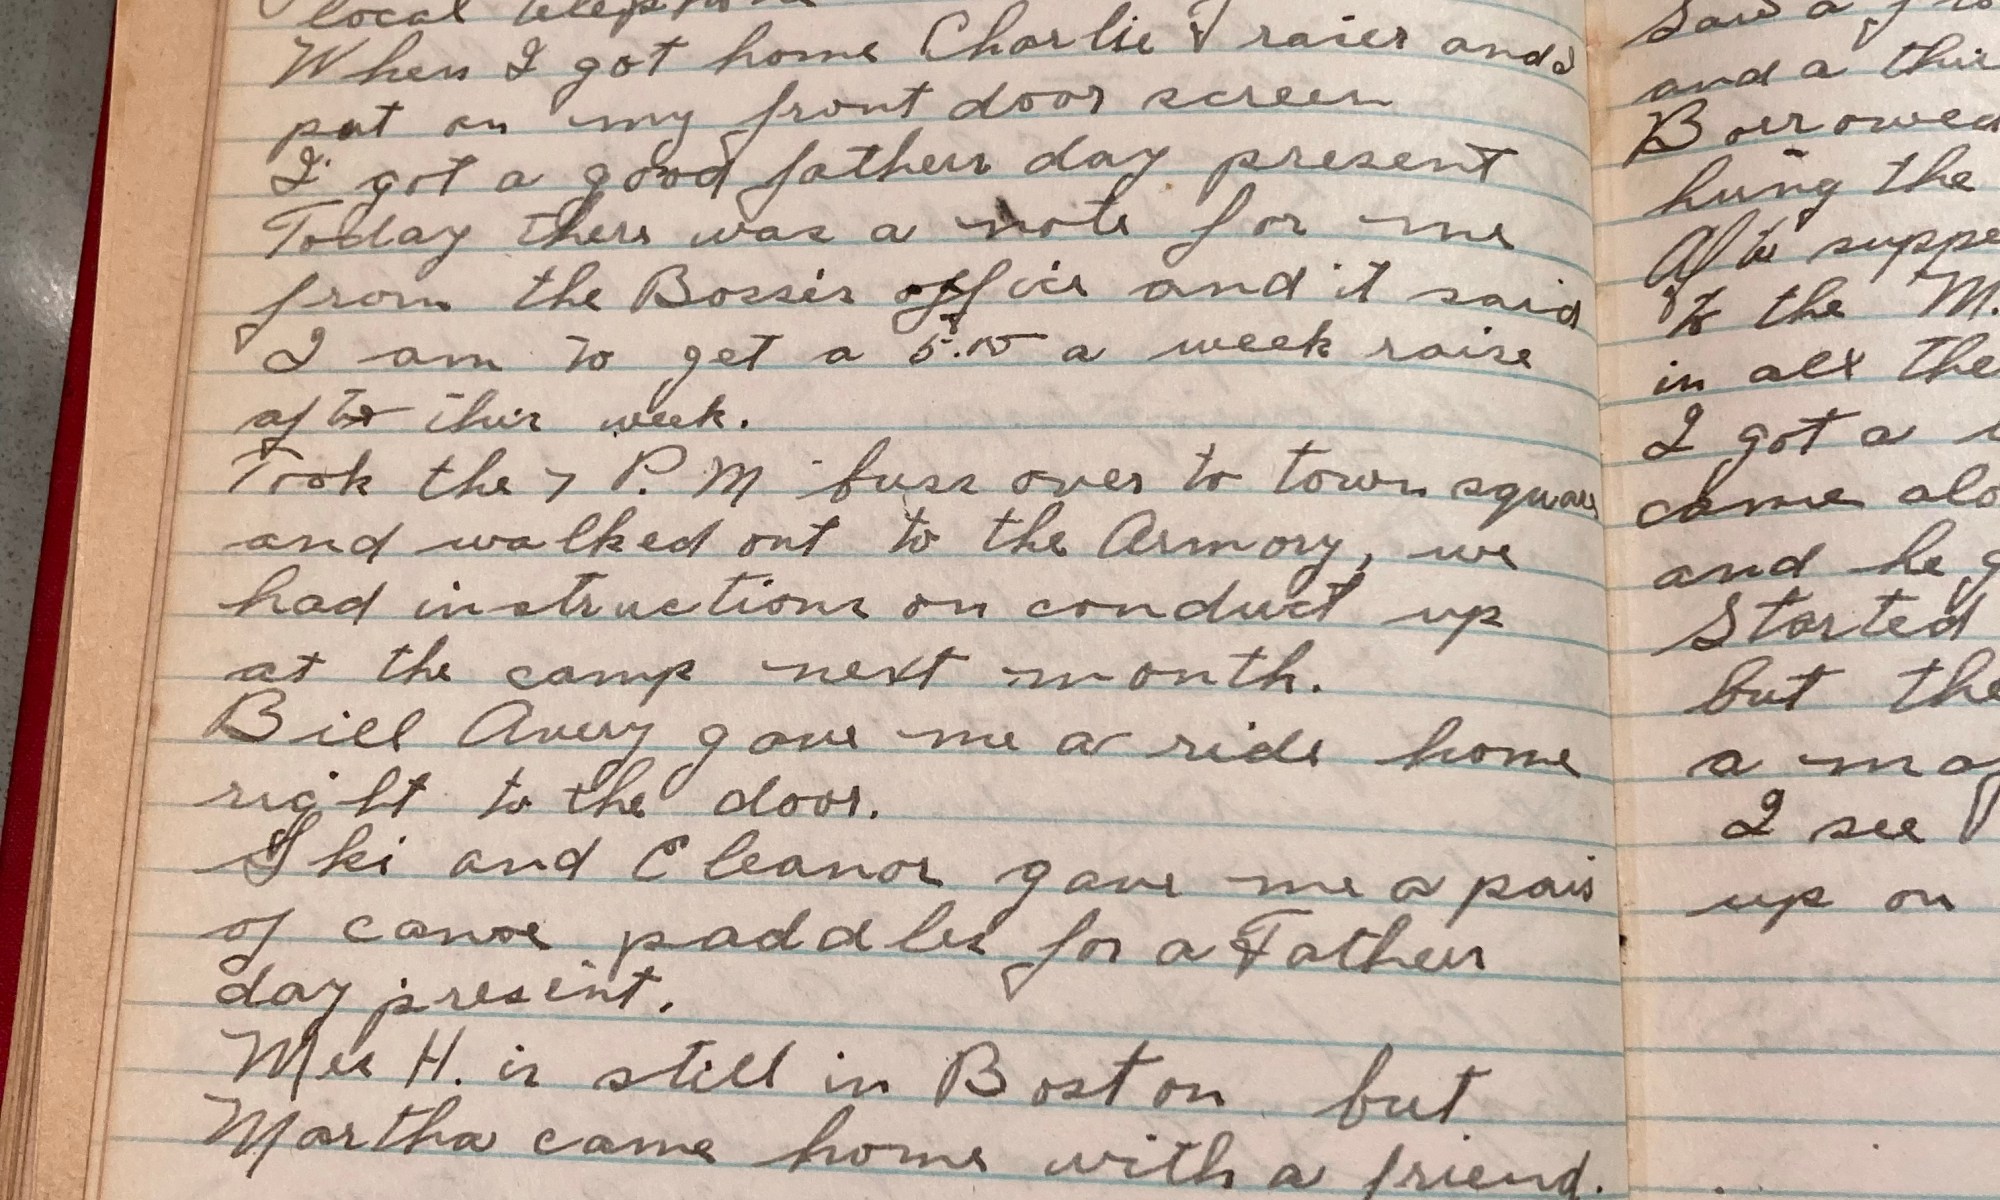 local telephone
When I got home Charlie Fraier and I
put on my front door screen
I got a good fathers day present
Today there was a note for me
from the Bosses office and it said
I am to get a 5.00 a week raise
after this week.
Took the 7 P.M buss over to town square
and walked out to the Armory, we
had instructions on conduct up
at the camp next month.
Bill Avery gave me a ride home
right to the door.
Ski and Eleanor gave me a pair
of canoe paddles for a Fathers
day present.
Mrs H. is still in Boston but
Martha came home with a friend.
Saw a
and a
Borrowed
hung the
After suppe
to the M.
in all the
I got a
came alo
and he g
Started
but the
a ma
I see
up on